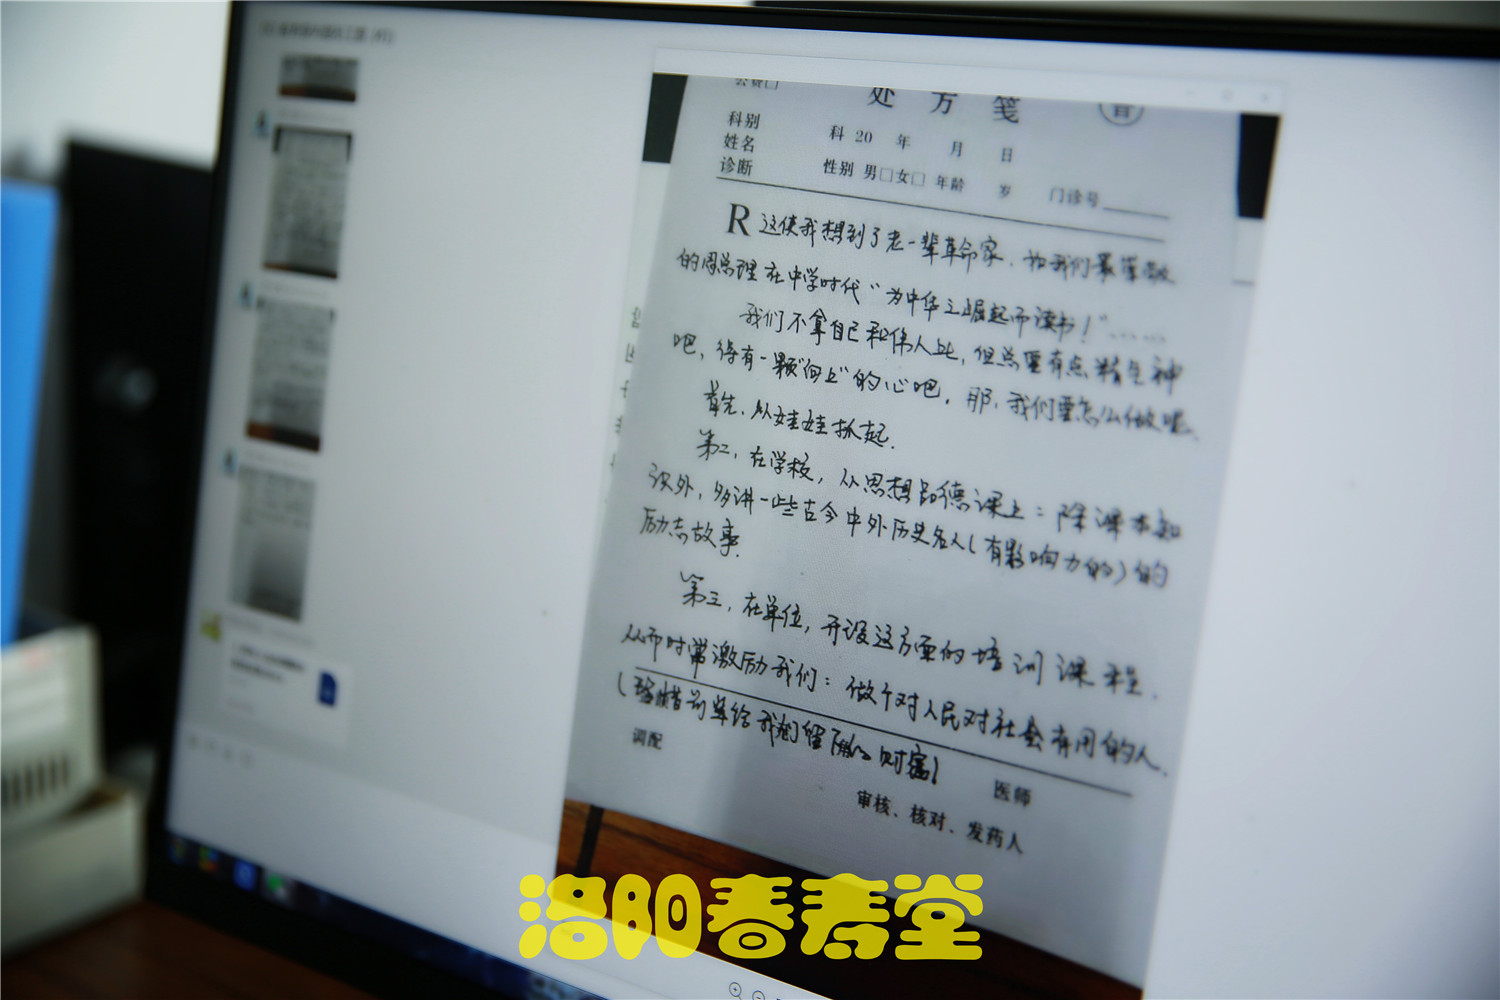 公费□
处方笺
普
科别 科 20 年 月 日
姓名 性别 男□女□ 年龄 岁 门诊号
诊断
R 这使我想到了老一辈革命家.如我们最崇敬
的周总理在中学时代“为中华之崛起而读书!”……
我们不拿自己和伟人比,但总要有点精气神
吧,得有一颗“向上”的心吧.那,我们要怎么做呢.
首先.从娃娃抓起.
第二,在学校,从思想品德课上:除课本知
识外,多讲一些古今中外历史名人(有影响力的)的
励志故事.
第三,在单位,开设这方面的培训课程.
从而时常激励我们:做个对人民对社会有用的人.
(珍惜前辈给我们留下的财富)
调配 医师
审核、核对、发药人
洛阳春寿堂